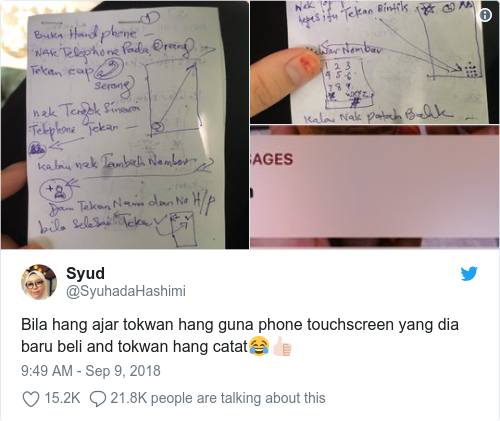 1
Buka Handphone -
Nak Telephone Pada Orang
Tekan cap
serong
nak Tengok Senarai
Telephone Tekan -
Kalau nak Tambah Nombor
+
Dan Tekan Nama dan No H/p
bila selesai Tekan ✓
Nak
itu Tekan Bintik
Nombor
1 2 3
4 5 6
7 8 9
Kalau Nak Balik
SAGES
Syud
@SyuhadaHashimi
Bila hang ajar tokwan hang guna phone touchscreen yang dia
baru beli and tokwan hang catat😂👍🏻
9:49 AM - Sep 9, 2018
15.2K 21.8K people are talking about this